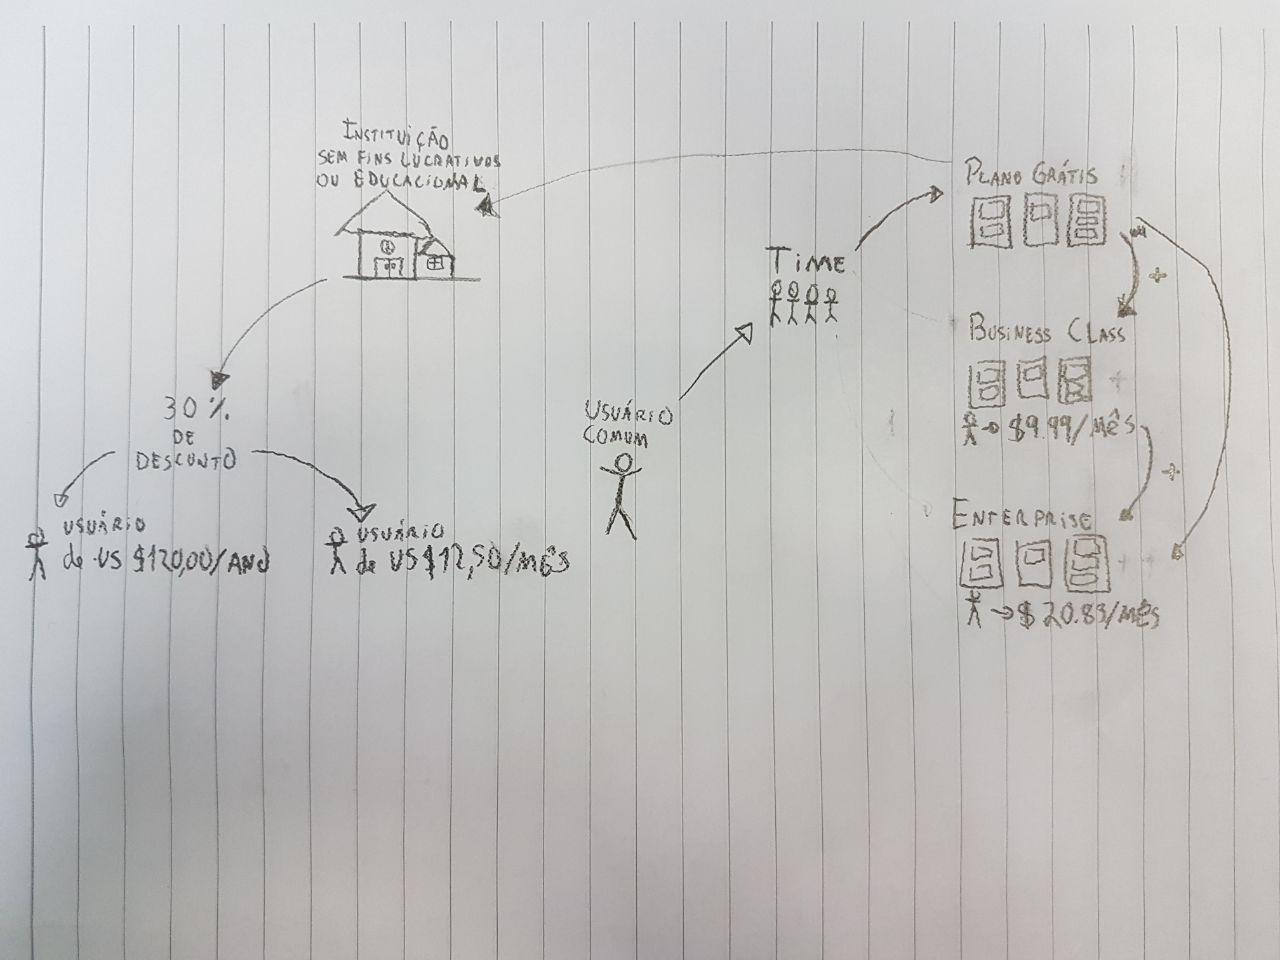 INSTITUIÇÃO
SEM FINS LUCRATIVOS
OU EDUCACIONAL
30 %
DE
DESCONTO
USUÁRIO
de US $120,00/ANO
USUÁRIO
de US$12,50/MÊS
USUÁRIO
COMUM
TIME
PLANO GRÁTIS
+
BUSINESS CLASS
+
$9.99/MÊS
+
ENTERPRISE
+ +
$20.83/MÊS